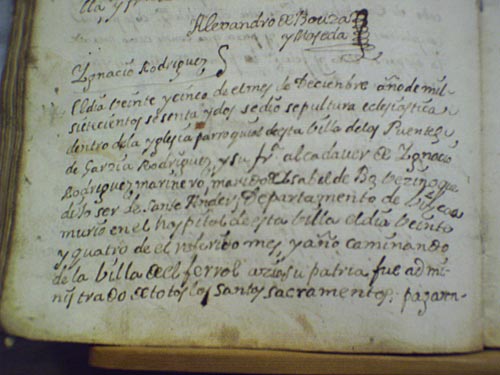 Alexandro de Bouza
y Mojeda
Ignacio Rodriguez
El dia veinte y cinco de el mes de Deciembre año de mil
setecientos sesenta y dos se dio sepultura eclesiastica
dentro de la yglesia parroquial de esta billa de las Puentes
de Garzia Rodriguez, y su fr.ª al cadaver de Ignacio
Rodriguez marinero, marido de Isabel de vezino que
dijo ser de Sante Andes, Departamento de
murio en el hospital de esta billa el dia veinte
y quatro de el referido mes, y año caminando
de la billa de el ferrol azia su patria fue admi-
nistrado de totos los santos sacramentos: pagaron